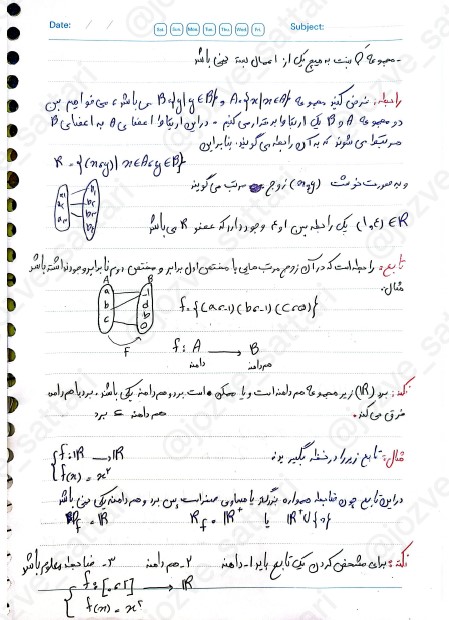 Date: / / Sat. Sun. Mon. Tue. Wed. Thu. Fri. Subject:
- مجموعه Q نسبت به هیچ یک از اعمال بسته نمی باشد
رابطه: فرض کنید مجموعه A={x|x∈A} و B={y|y∈B} می باشد، می خواهیم بین
دو مجموعه A و B یک ارتباط برقرار می کنیم - در این ارتباط اعضای A به اعضای B
مرتبط می شوند که به آن رابطه می گویند. بنابراین
R = {(x,y) | x∈A, y∈B}
و به صورت (x,y) زوج مرتب می گویند
(۱,۴) ∈ R یک رابطه بین ۱ و ۴ وجود دارد که عضو R می باشد
تابع: رابطه است که در آن زوج مرتب هایی با مختص اول برابر و مختص دوم نابرابر وجود نداشته باشد
مثال:
A B
a b c
-1 d b
f = {(a,-1)(b,-1)(c, )}
F
f: A → B
دامنه هم دامنه
نکته: برد (R) زیر مجموعه هم دامنه است و یا ممکن است برد و هم دامنه یکی باشد. برد با هم دامنه
فرق می کند. هم دامنه ⊆ برد
مثال: تابع زیر را در نظر بگیرید:
f: R → R
f(x) = x²
در این تابع چون ضابطه همواره بزرگتر یا مساوی صفر است پس برد و هم دامنه یکی نمی باشد
D_f = R R_f = R⁺ یا R⁺∪{0}
نکته: برای مشخص کردن یک تابع باید ۱- دامنه ۲- هم دامنه ۳- ضابطه معلوم باشد
f: [0,2] → R
f(x) = x²